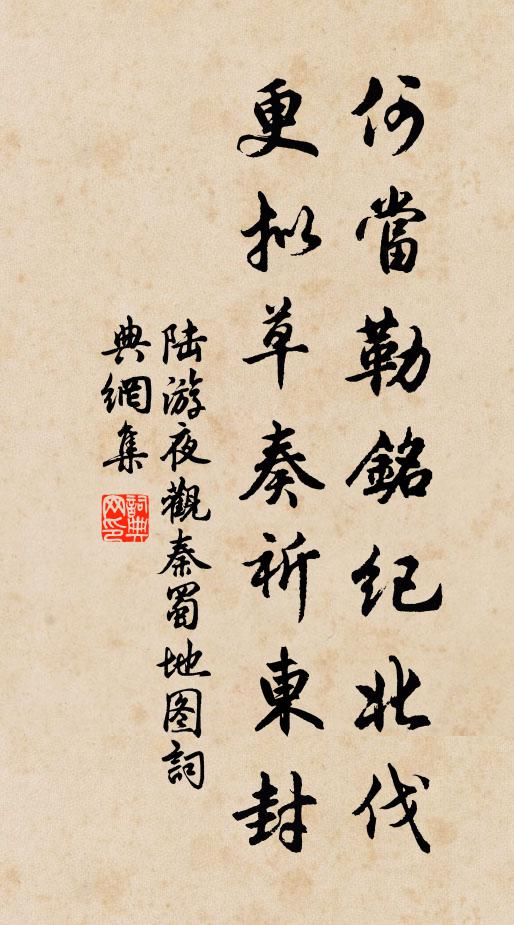 何當勒銘紀北伐
更拟草奏祈東封
陆游夜觀秦蜀地图詞
典網集
詞典網印